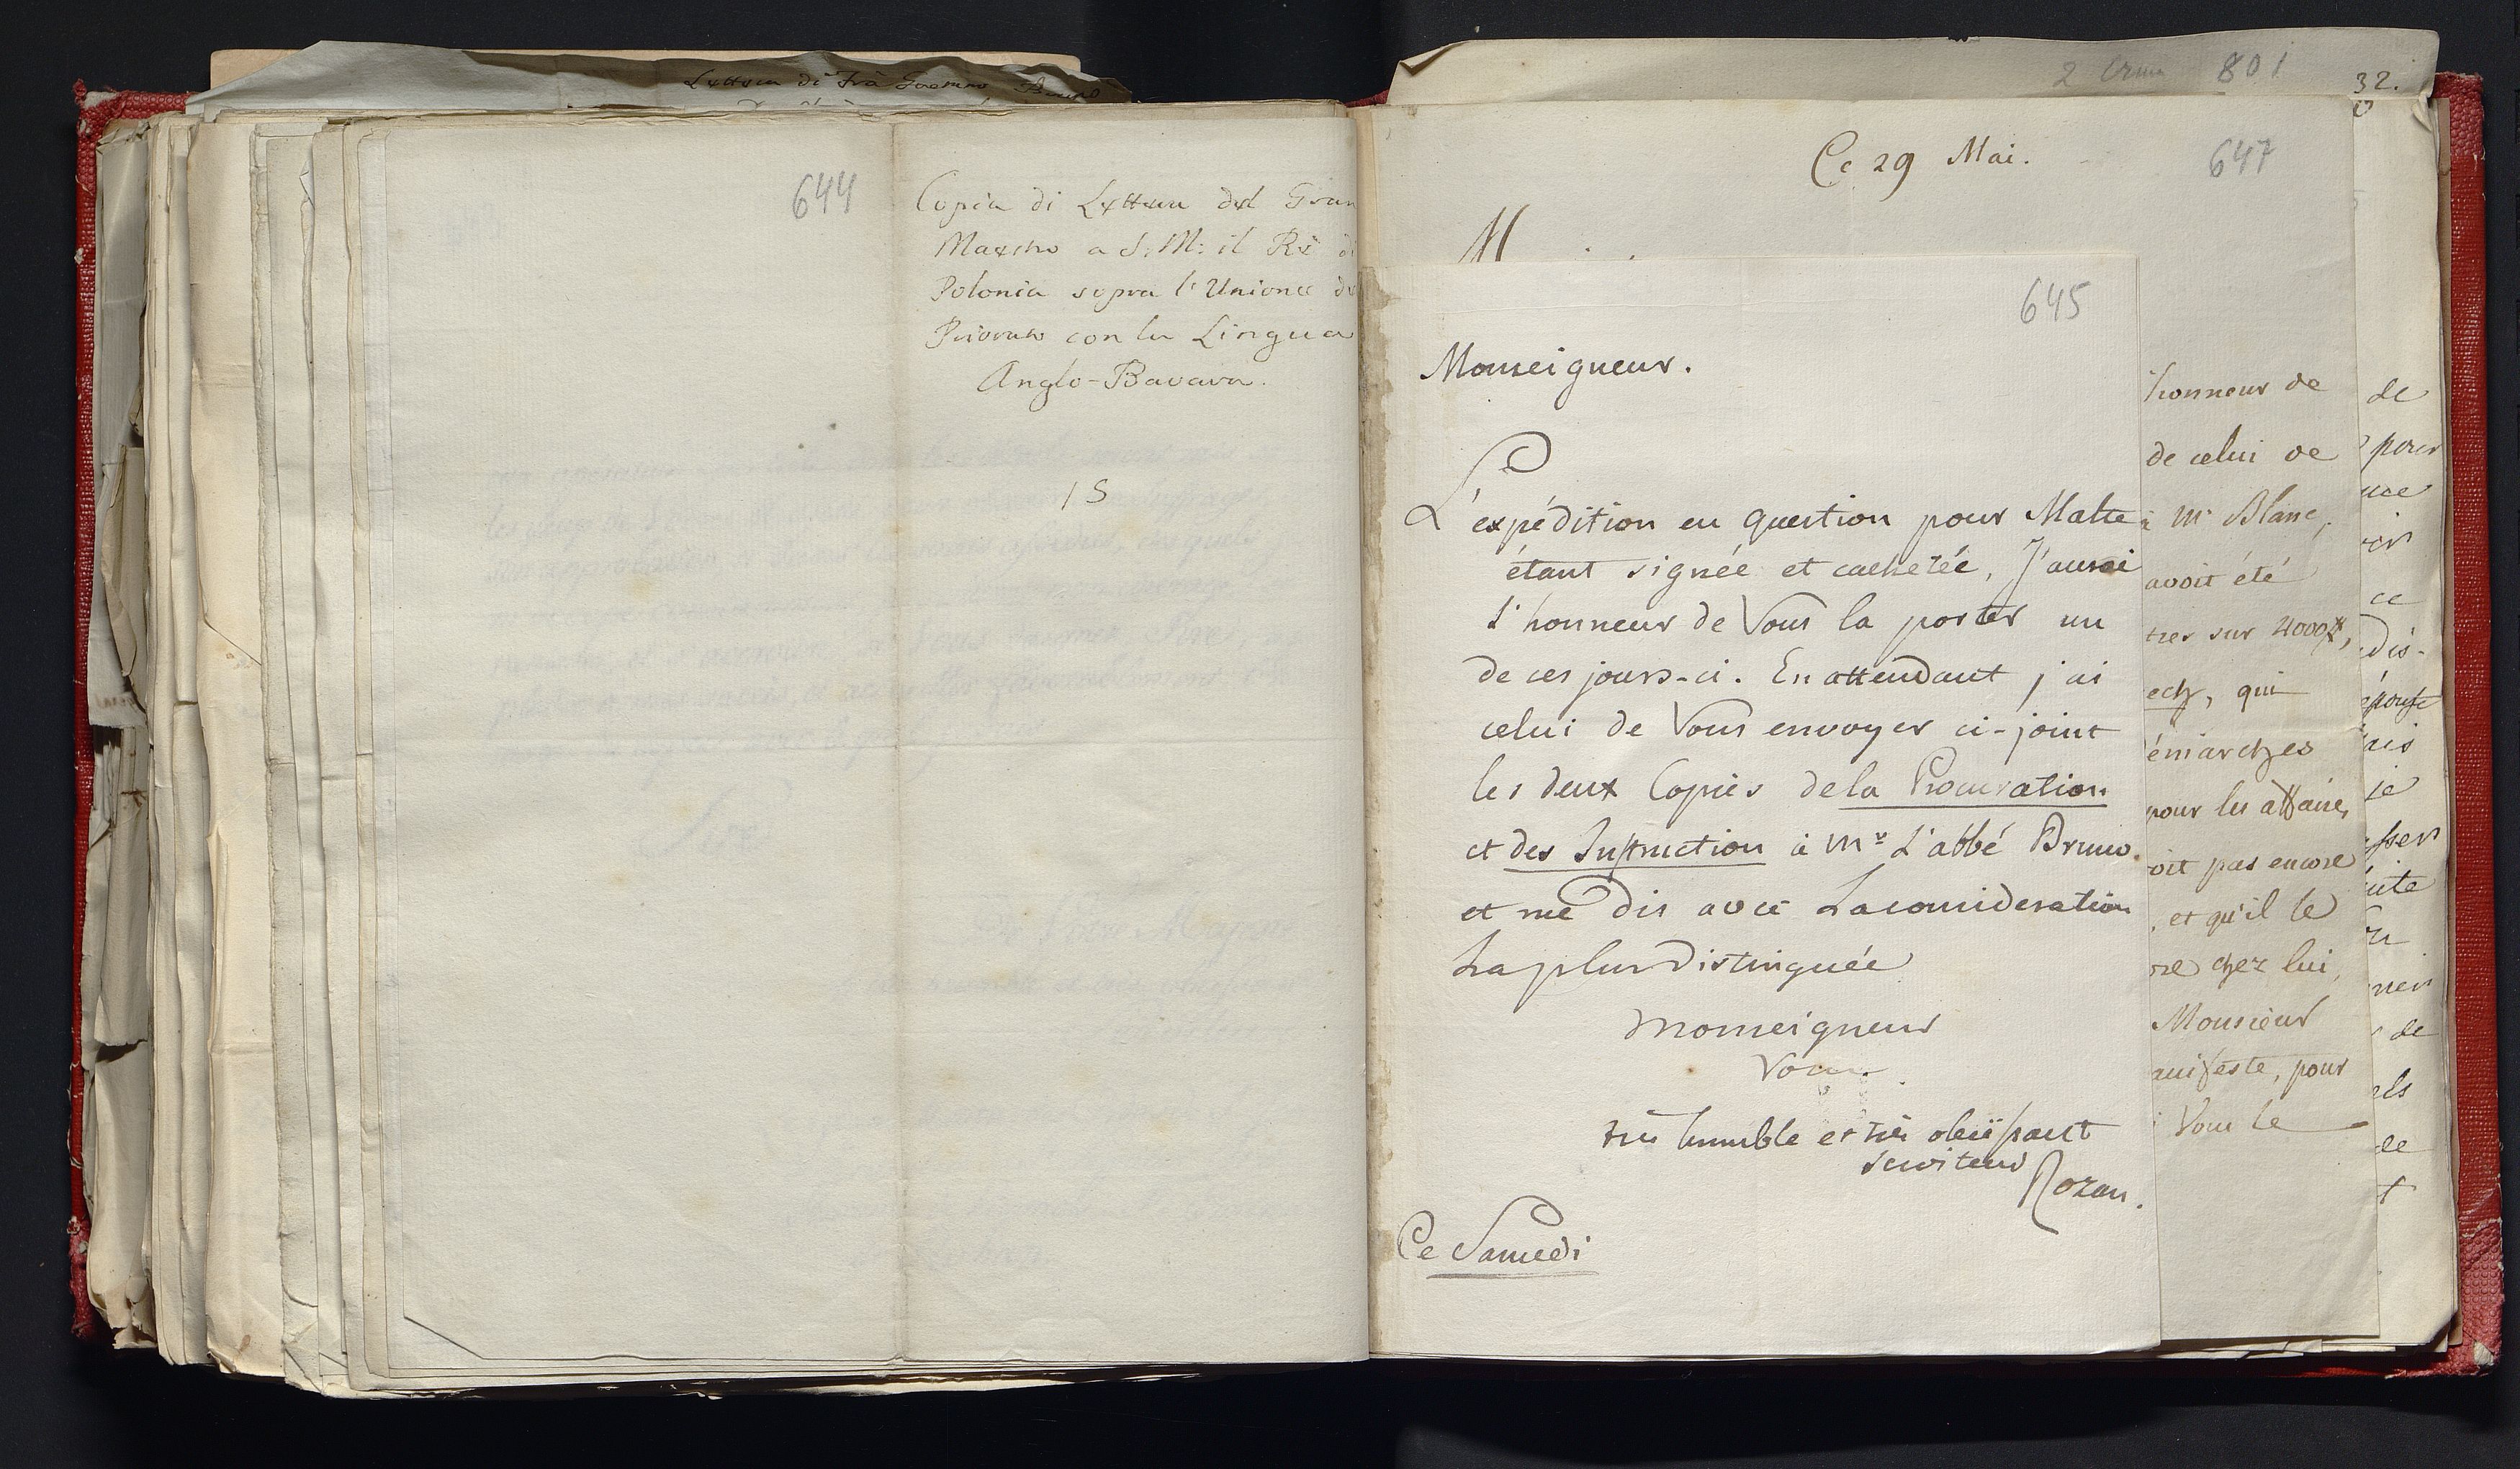 Lettera di frà Gaetano Bruno
644
Copia di Lettera del Gran
Maestro a S: M: il Rè di
Polonia sopra l'Unione del
Priorato con la Lingua
Anglo-Bavara.
15
2 801
32.
Ce 29 Mai.
647
M
645
Monseigneur.
L'expédition en question pour Malte
étant signée et cachetée, J'aurai
l'honneur de Vous la porter un
de ces jours-ci. En attendant j'ai
celui de Vous envoyer ci-joint
les deux Copies de la Procuration
et des Instruction à Mr L'abbé Bruno.
et me dis avec La consideration
La plus distinguée
Monseigneur
Votre
très humble et très obeïssant
serviteur
Rozan.
Ce Samedi
honneur de
de celui de
à Mr Blanc,
avoit été
tres sur 4000#,
ech, qui
émarches
pour les affaires
oit pas encore
, et qu'il le
re chez lui,
Monsieur
anifeste, pour
Vous le
de
pour
nce
ce
dis-
éponse
ais
je
sser
uite
ner
de
els
de
t